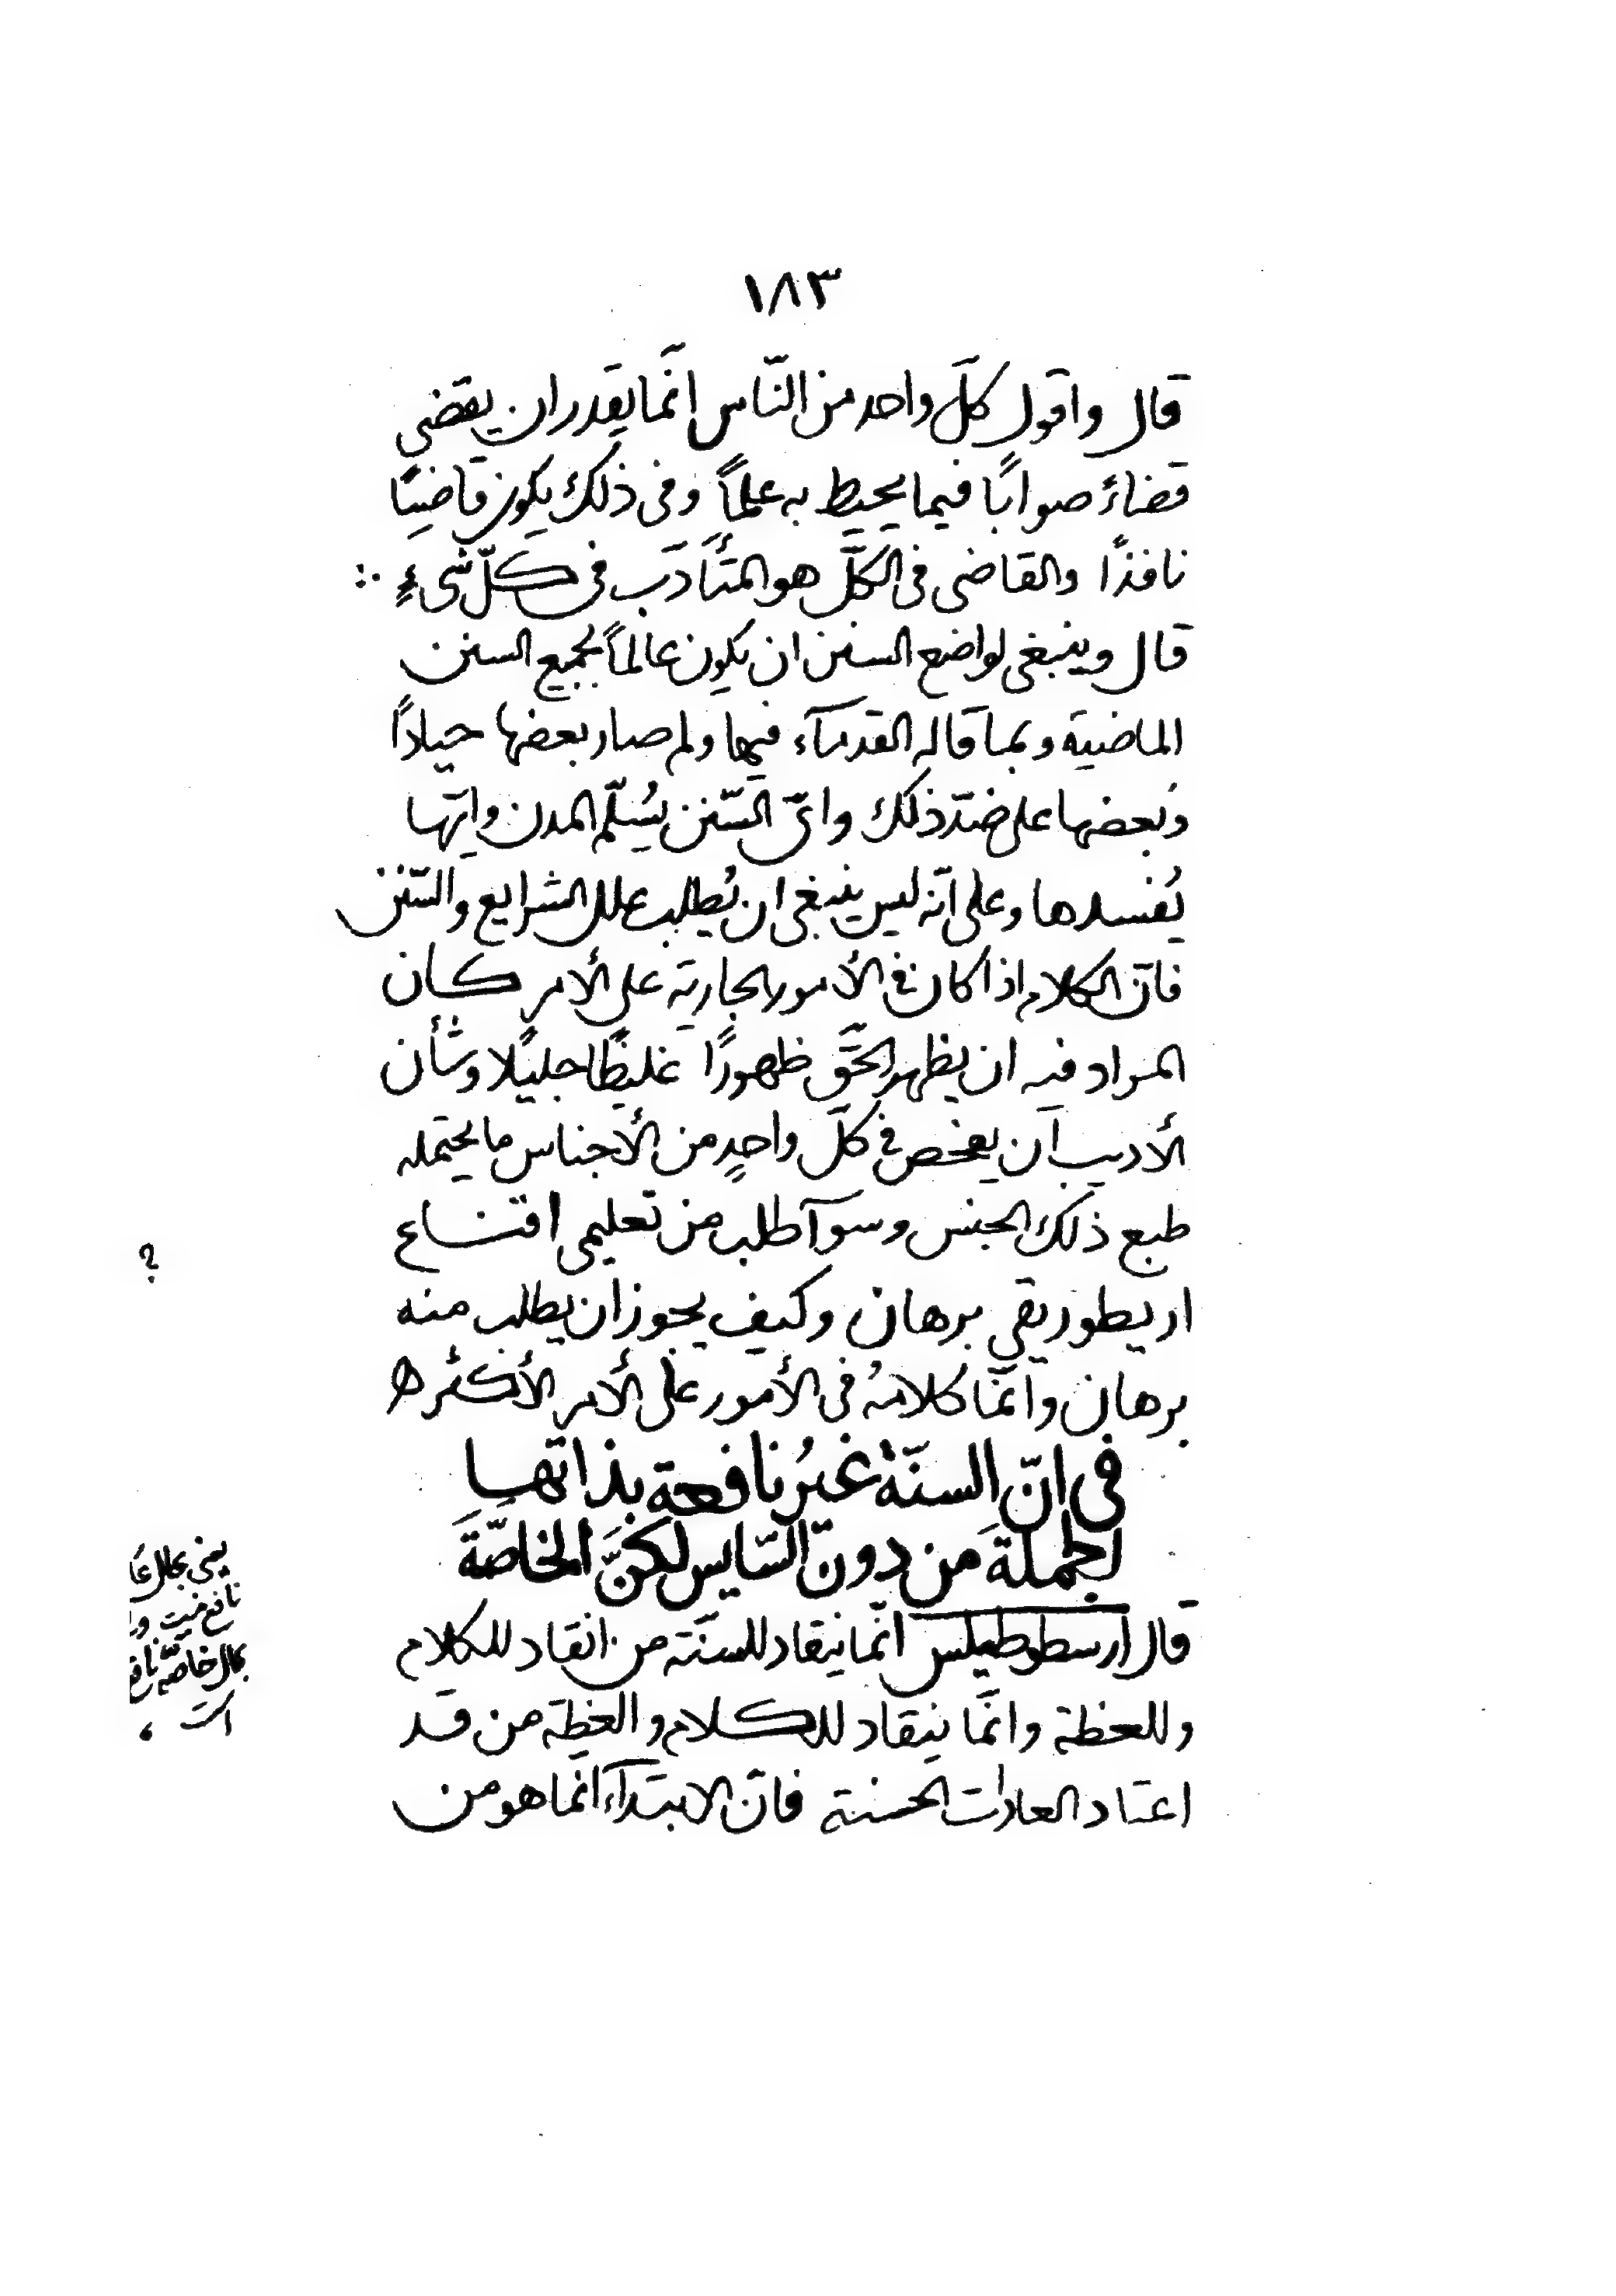 ١٨٣
قال واقول كلّ واحد من النّاس انّما يقدر ان يقضي
قضاءً صوابًا فيما يحيط به علمًا وفى ذلك يكون قاضيًا
نافذًا والقاضى فى الكلّ هو المتأدّب فى كلّ شىءٍ ∴
قال وينبغى لواضع السنن ان يكون عالمًا بجميع السنن
الماضية وبما قاله القدمآء فيها ولم صار بعضها جيادًا
وبعضها على ضدّ ذلك واىّ السّنن يُسلّم المدن وايّها
يُفسدها وعلى انّه ليس ينبغى ان يُطلب علل الشرايع والسّنن
فانّ الكلام اذا كان فى الأمور الجارية على الأمر كان
المراد فيه ان يظهر الحقّ ظهورًا غليظًا جليلًا وشأن
الأديب ان يفحص فى كلّ واحدٍ من الأجناس ما يحتمله
طبع ذلك الجنس وسوآ طلب من تعليمى اقناع
اريطوريقي برهان وكيف يجوز ان يطلب منه
برهان وانّما كلامهُ فى الأمور على الأمر الأكثر ه
فى انّ السنّة غيرُ نافعة بذاتها
الجملةَ من دون السّايس لكنّ الخاصّةَ
قال ارسطوطيلس انّما ينقاد للسنّة من انقاد للكلام
وللعظة وانّما ينقاد للكلام والعظة من قد
اعتاد العادات الحسنة فانّ الابتدآء انّما هو من
؟
يعنى بحال عا
نافع نيست و
بحال خاصّه نافع
است ،